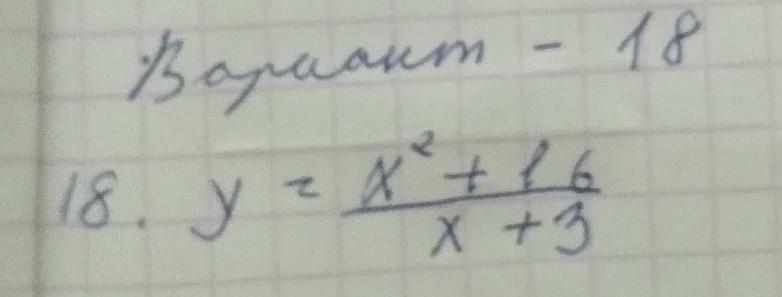 Вариант - 18
18. y = x² + 16 / x + 3